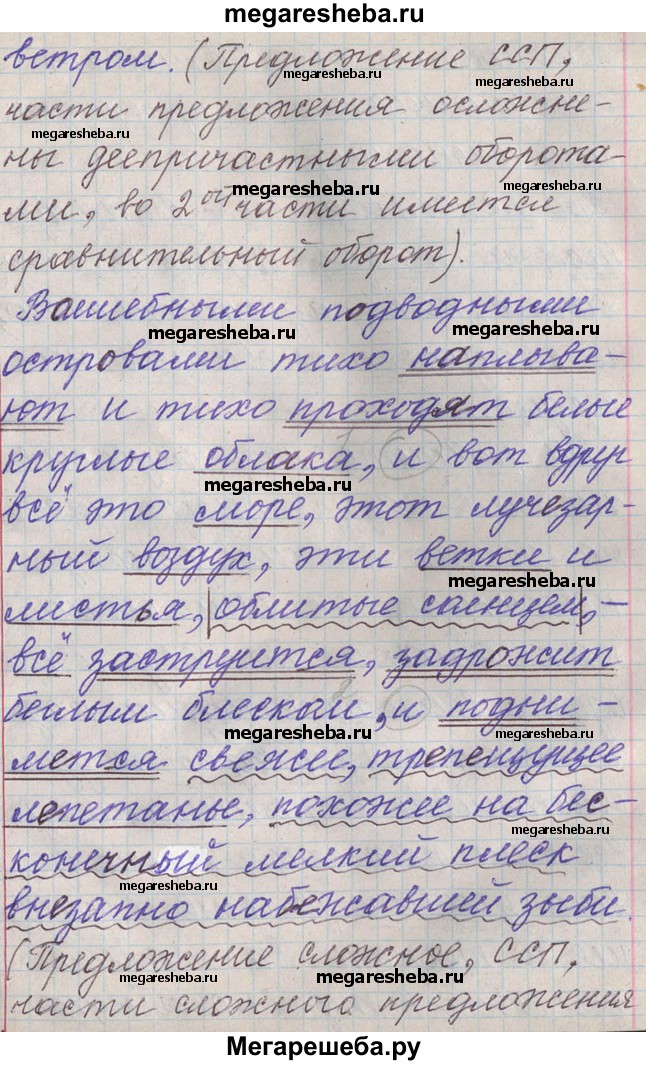 megaresheba.ru
ветром. (Предложение ССП,
megaresheba.ru
части предложения осложне-
megaresheba.ru
megaresheba.ru
ны деепричастными оборота-
megaresheba.ru
ми, во 2ой части имеется
сравнительный оборот).
Волшебными подводными
megaresheba.ru
megaresheba.ru
островами тихо наплыва-
ют и тихо проходят белые
круглые облака, и вот вдруг
megaresheba.ru
всё это море, этот лучезар-
ный воздух, эти ветки и
megaresheba.ru
листья, облитые солнцем, -
всё заструится, задрожит
беглым блеском, и подни-
megaresheba.ru
мется свежее, трепещущее
лепетанье, похожее на бес-
megaresheba.ru
конечный мелкий плеск
megaresheba.ru
внезапно набежавшей зыби.
(Предложение сложное, ССП,
megaresheba.ru
megaresheba.ru
части сложного предложения
Мегарешеба.ру